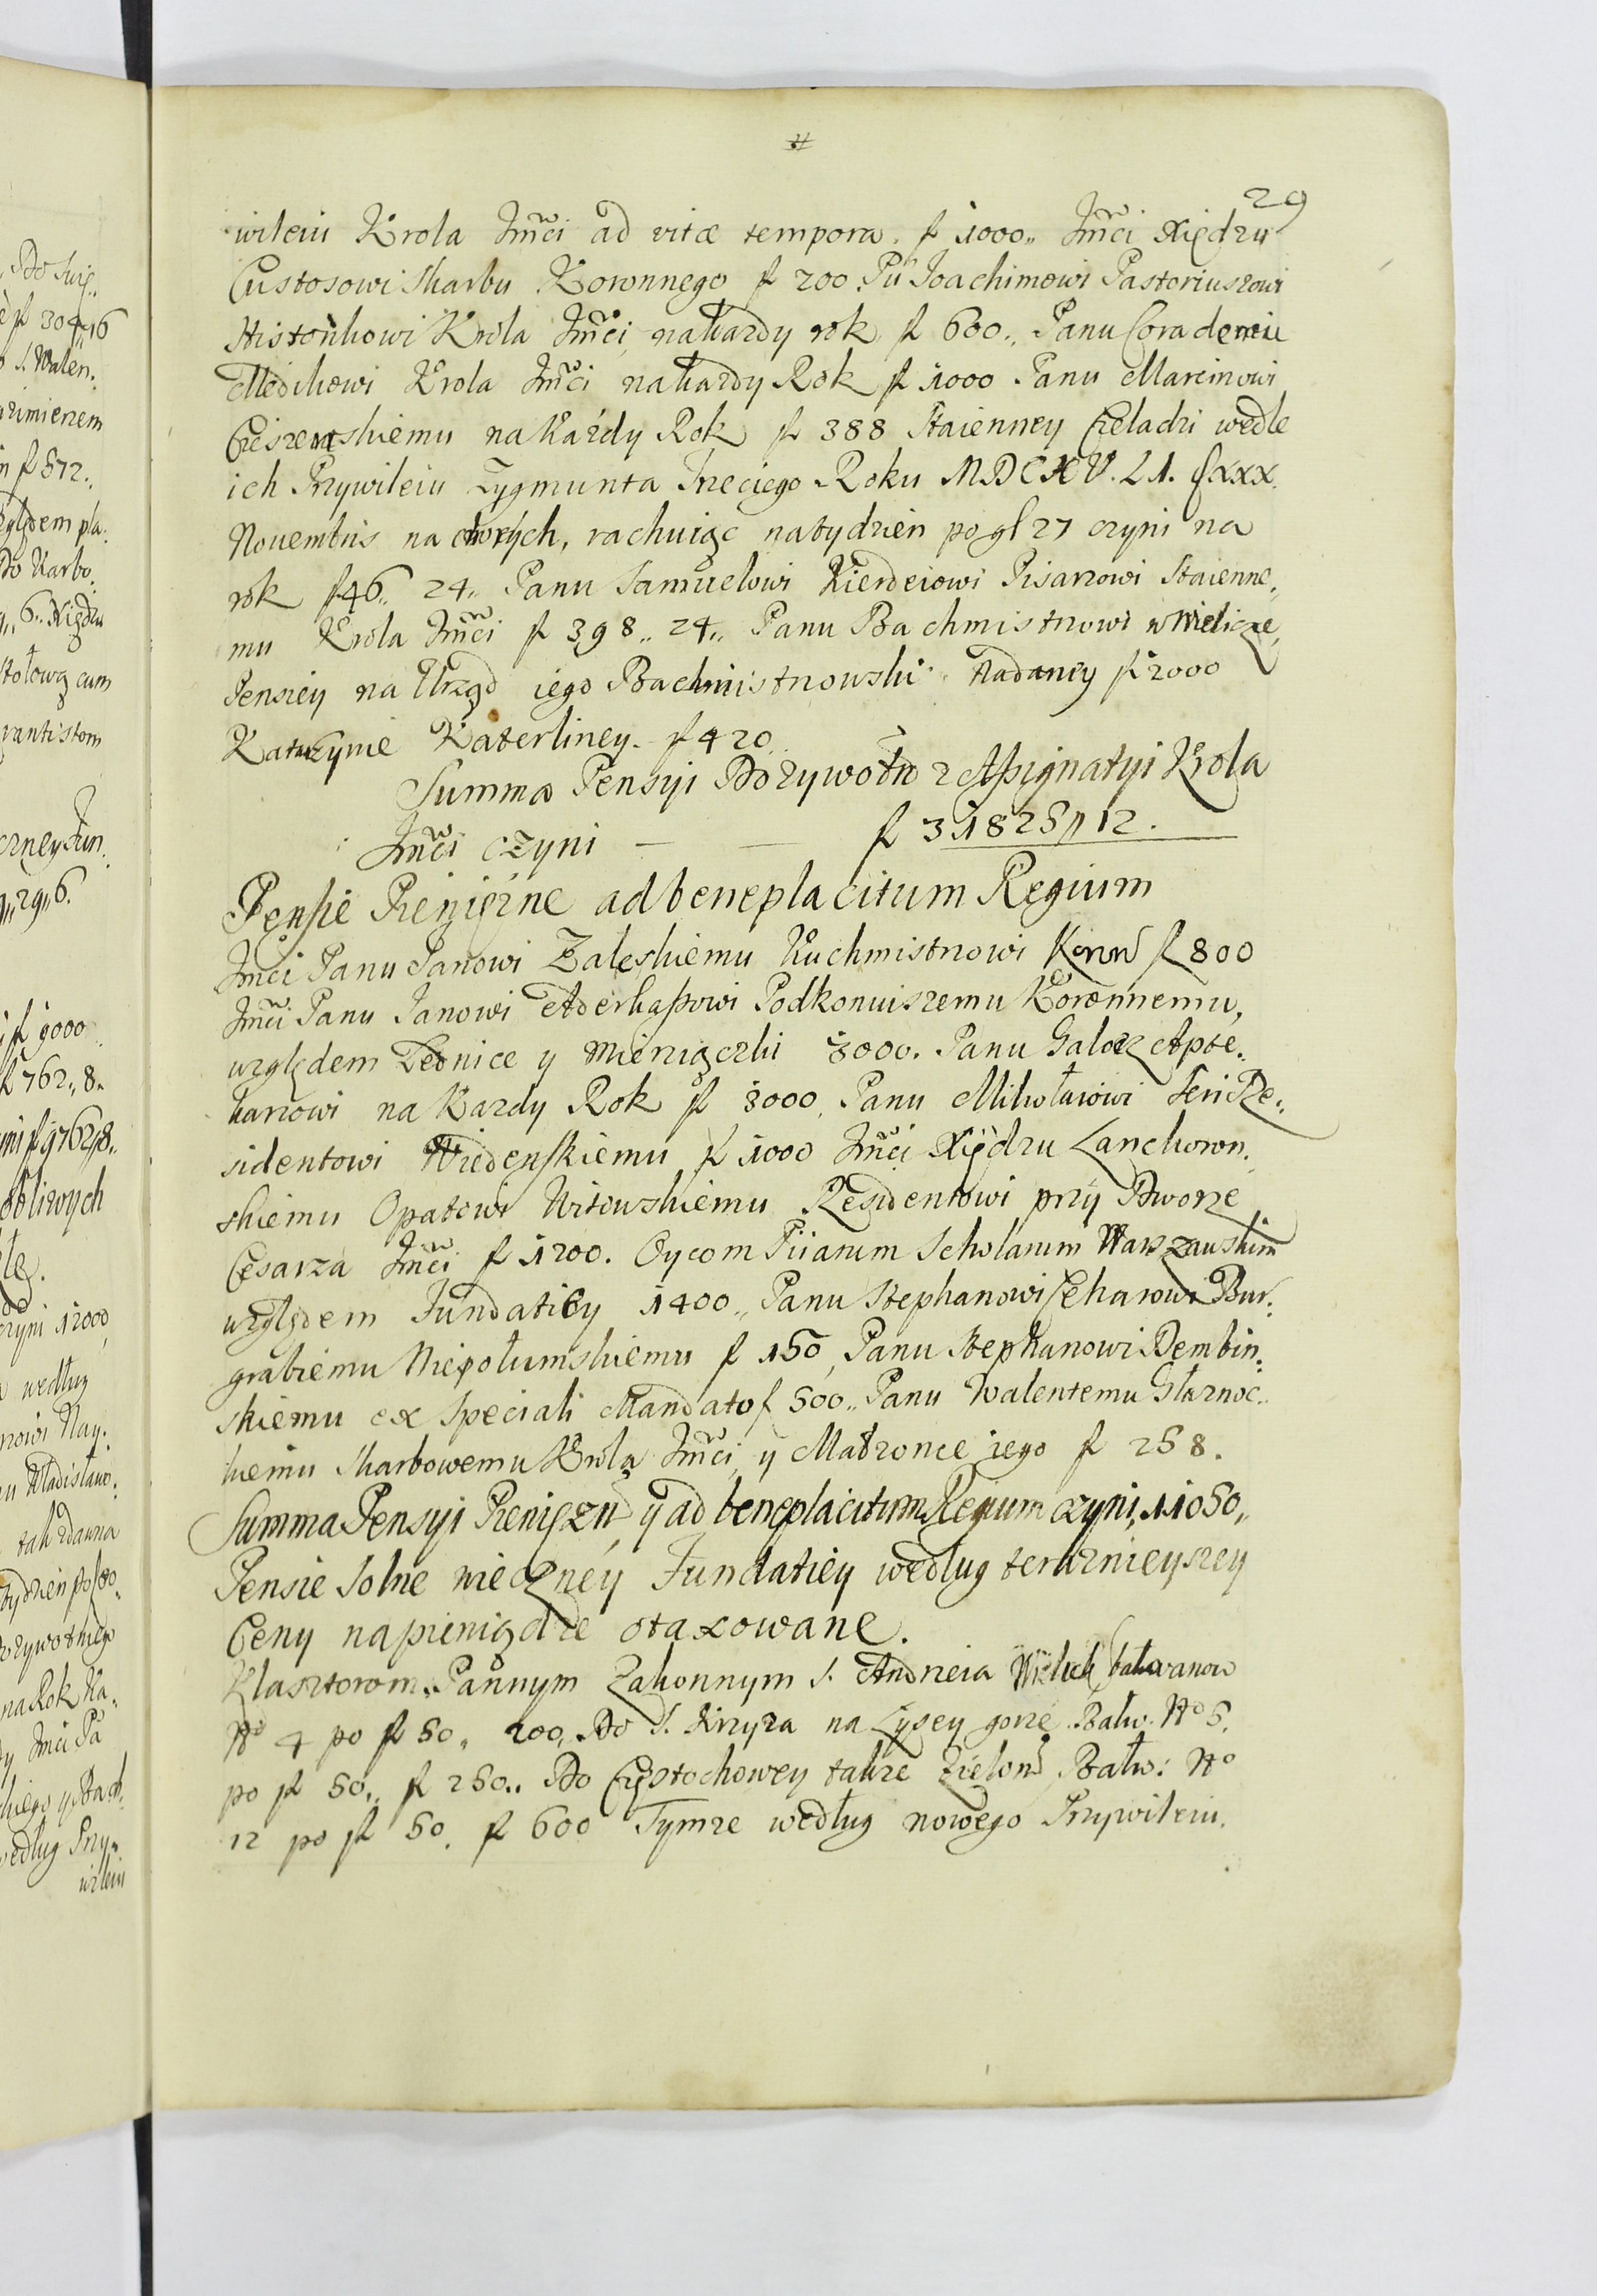 29
wileiu Krola Jmci ad vitæ tempora. f 1000,, Jmci Xiędzu
Custosowi Skarbu Koronnego f 200. Pu Joachimowi Pastoriuszowi
Historikowi Króla Jmci, na kazdy rok f 600,, Panu
Medikowi Krola Jmci na kazdy Rok f 1000. Panu Marcinowi
na Każdy Rok f 388 Staienney Czeladzi wedle
ich Przywileiu Zygmunta Trzeciego Roku
Nouembris na chorych, rachuiąc na tydzień po gl 27 czyni na
rok f 46,, 24,, Panu Samuelowi Kierdeiowi Pisarzowi Staienne,,
mu Króla Jmci f 398,, 24,, Panu Bachmistrzowi w Wielicze,
Pensiey na Urząd iego Bachmistrzowski Nadaney f 2000
Katarzynie Katerliney. f 420,
Summa Pensyi Dozywotn z Assignatyi Krola
Jmci czyni — — f 31825,, 12.
Pensie Pieniężne ad beneplacitum Regium
Jmci Panu Janowi Zaleskiemu Kuchmistrzowi Koron f 800
Jmci Panu Janowi Aderkassowi Podkoniuszemu Koronnemu,
względem Letnice y Mierzączki 3000. Panu Apte,,
karzowi na Kazdy Rok f 3000, Panu Mikołaiowi Re,,
sidentowi Wiedenskiemu f 1000 Jmci Xiędzu Lanckoron,,
skiemu Opatowi Witowskiemu Residentowi przy Dworze
Cesarza Jmci f 1200. Oycom Piiarum Scholarum Warszauskim
względem Fundatiey 1400,, Panu Stephanowi Bur:
grabiemu Niepołumskiemu f 150, Panu Stephanowi Dembin:
skiemu ex speciali Mandato f 500,, Panu Walentemu
kiemu Skarbowemu Króla Jmci, y Małzonce iego f 258.
Summa Pensyi Pieniężn y ad beneplacitum Regium czyni, 11050,,
Pensie Solne wieczney Fundatiey według teraznieyszey
Ceny na pieniądze otaxowane.
Klasztorom. Pannym Zakonnym S. Andrzeia Bałwanow
No 4 po f 50,, 200,, Do S. Krzyza na Łysey gorze. Bałw. No 5.
po f 50,, f 250,, Do Częstochowey także Zielon Bałw: No
12 po f 50. f 600 Tymze według nowego Przywileiu.